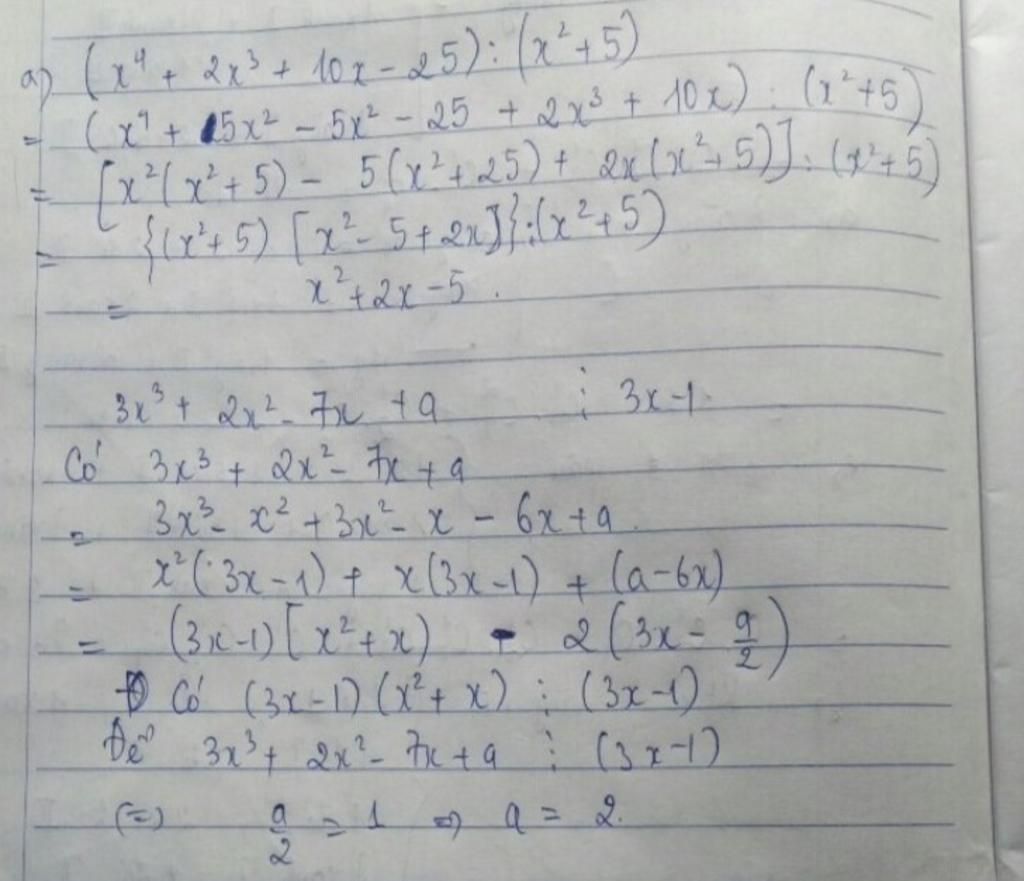 a) (x⁴ + 2x³ + 10x - 25) : (x² + 5)
= (x⁴ + 5x² - 5x² - 25 + 2x³ + 10x) : (x² + 5)
= [x²(x² + 5) - 5(x² + 25) + 2x(x² + 5)] : (x² + 5)
= {(x² + 5) [x² - 5 + 2x]} : (x² + 5)
= x² + 2x - 5 .
3x³ + 2x² - 7x + a ⋮ 3x - 1
Có 3x³ + 2x² - 7x + a
= 3x³ - x² + 3x² - x - 6x + a .
= x²(3x - 1) + x(3x - 1) + (a - 6x)
= (3x - 1) [x² + x) - 2(3x - a/2)
Có (3x - 1)(x² + x) ⋮ (3x - 1)
Để 3x³ + 2x² - 7x + a ⋮ (3x - 1)
(=) a/2 = 1 => a = 2.